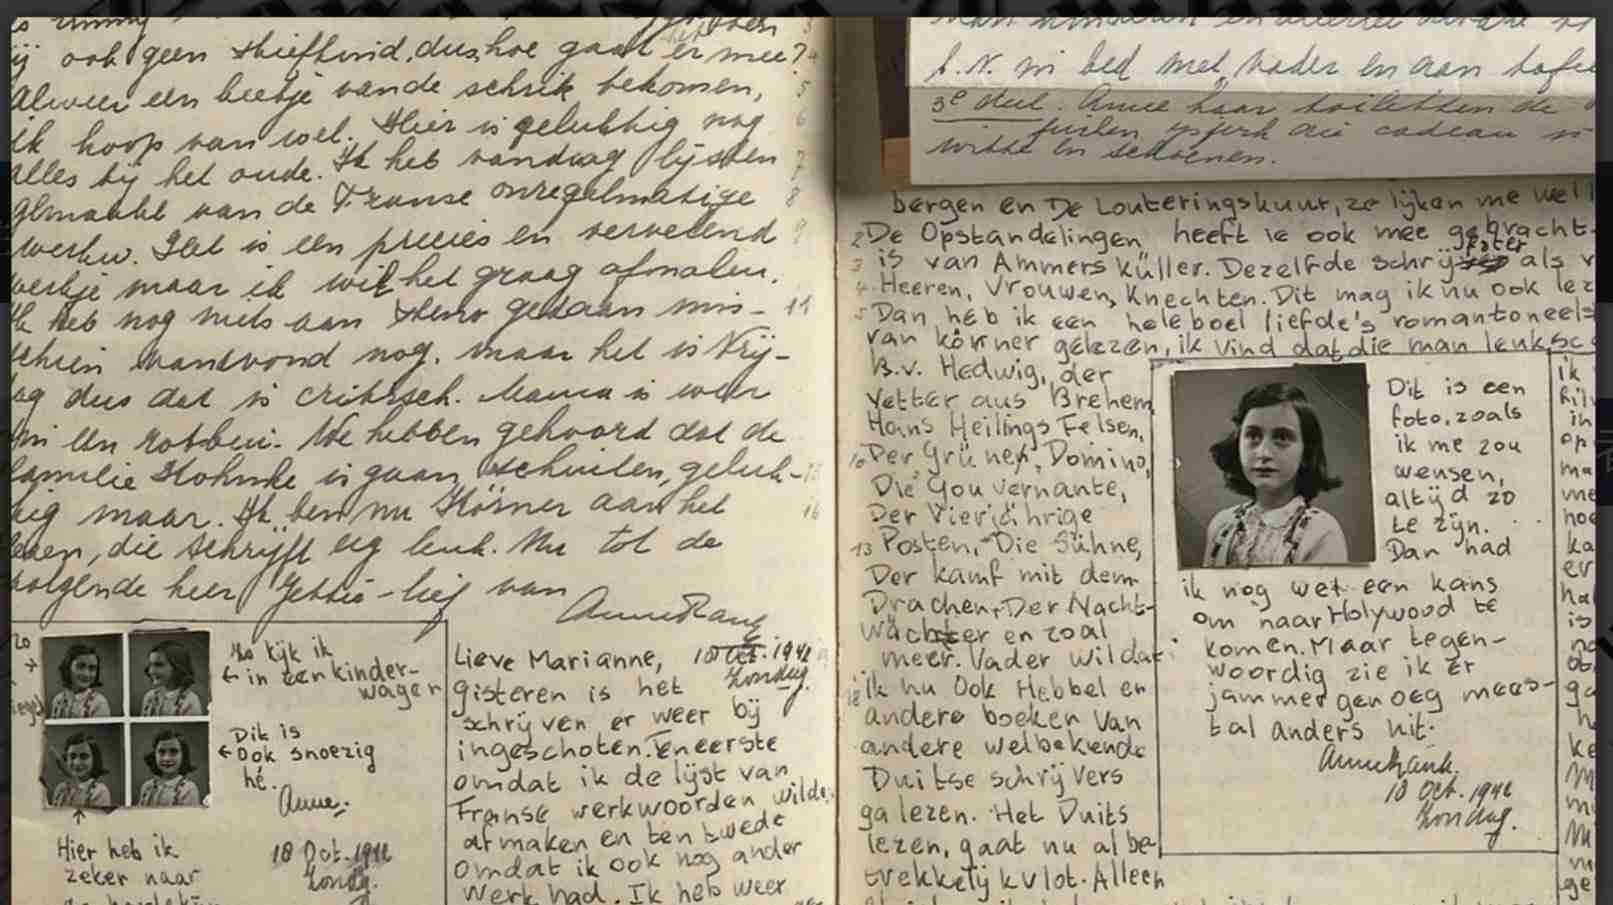 ij ook geen stiefkind, dus hoe gaat er mee?
Alweer een beetje van de schrik bekomen,
ik hoop van wel. Hier is gelukkig nog
alles bij het oude. Ik heb vandaag lijsten
gemaakt van de Franse onregelmatige
werkw. Het is een precies en vervelend
werkje maar ik wil het graag afmaken.
Ik heb nog niets aan Steno gedaan mis-
schien vanavond nog, maar het is Vrij-
ag dus dat is critisch. Mama is weer
in een robbui. We hebben gehoord dat de
familie is gaan schuilen, geluk-
kig maar. Ik ben nu Körner aan het
lezen, die schrijft erg leuk. Nu tot de
volgende keer Jettie-lief van
Anne Frank
Zo kijk ik
← in een kinder-
wagen
Dit is
←ook snoezig
hé.
Anne.
Hier heb ik
zeker naar
18 Oct. 1942
Zondag.
Lieve Marianne,
Oct. 1942
Zondag.
gisteren is het
schrijven er weer bij
ingeschoten. Ten eerste
omdat ik de lijst van
Franse werkwoorden wilde
afmaken en ten twede
omdat ik ook nog ander
werk had. Ik heb weer
in bed met vader en aan tafel
3e deel. Anne haar toiletten de
cadeau
witte en schoenen.
bergen en De Louteringskuur, ze lijken me wel l
De Opstandelingen heeft ie ook mee gebracht.
is van Ammers Küller. Dezelfde schrijfster als v
Heeren, Vrouwen, Knechten. Dit mag ik nu ook lez
Dan heb ik een heleboel liefde's romantoneels
van körner gelezen, ik vind dat die man leuk sc
B.v. Hedwig, der
Vetter aus Brehem
Hans Heilings Felsen,
Der Grünen Domino,
Die Gouvernante,
Der Vierjährige
Posten, Die Sühne,
Der kamf mit dem
Drachen, Der Nacht-
wächter en zoal
meer. Vader wil dat
ik nu Ook Hebbel en
andere boeken van
andere welbekende
Duitse schrijvers
ga lezen. Het Duits
lezen, gaat nu al be-
trekkelijk vlot. Alleen
Dit is een
foto, zoals
ik me zou
wensen,
altijd zo
te zijn.
Dan had
ik nog wel een kans
om naar Holywood te
komen. Maar tegen-
woordig zie ik er
jammer genoeg mees-
tal anders uit.
Anne Frank.
18 Oct. 1942
Zondag.